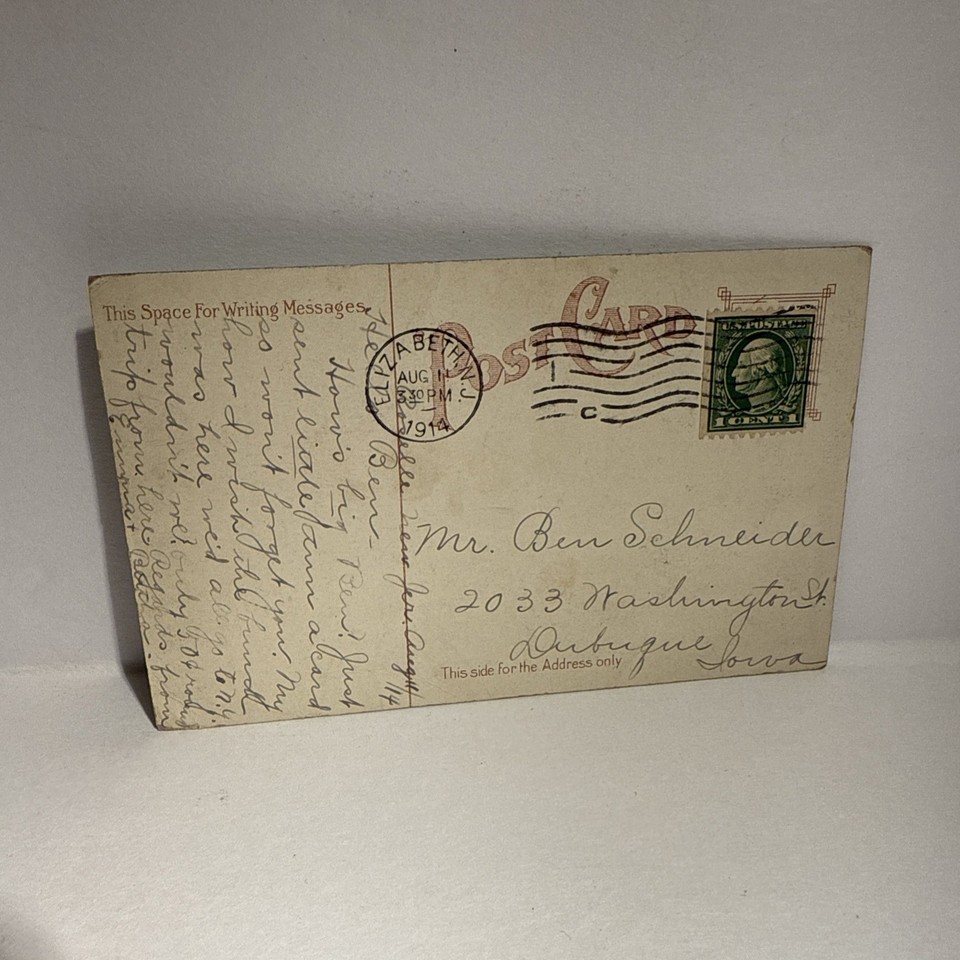 This Space For Writing Messages
POST CARD
ELIZABETH, N.J.
AUG 11
3 30 PM
1914
C
U.S. POSTAGE
1 CENT 1
Roselle New Jers. Aug 11/14
Hello Ben-
How's big Ben? Just
sent a card
so won't forget you. My
how I wish the bunch
was here we'd all go to N.Y.
wouldn't we? only
trip from here Regards from
Emma
Mr. Ben Schneider
2033 Washington St.
Dubuque
Iowa
This side for the Address only